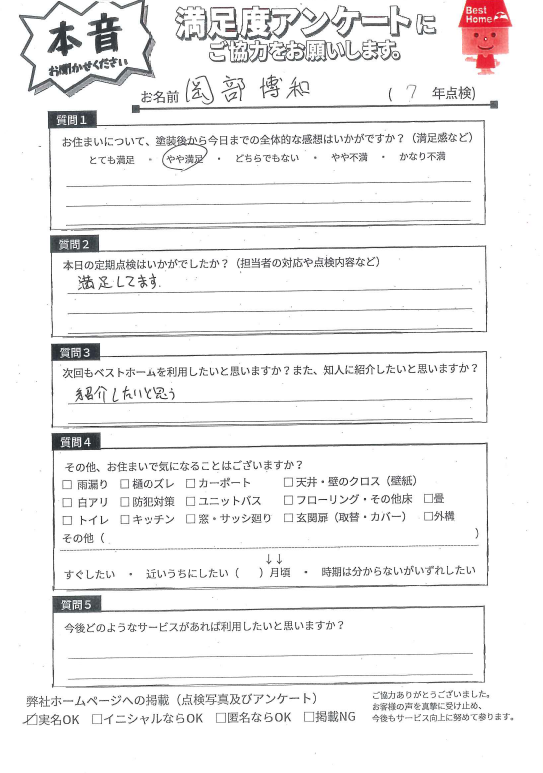 本音
お聞かせください
満足度アンケートに
ご協力をお願いします。
Best Home
お名前 岡部 博和 ( 7 年点検)
質問1
お住まいについて、塗装後から今日までの全体的な感想はいかがですか？（満足感など）
とても満足 ・ やや満足 ・ どちらでもない ・ やや不満 ・ かなり不満
質問2
本日の定期点検はいかがでしたか？（担当者の対応や点検内容など）
満足してます.
質問3
次回もベストホームを利用したいと思いますか？また、知人に紹介したいと思いますか？
紹介したいと思う
質問4
その他、お住まいで気になることはございますか？
□ 雨漏り □ 樋のズレ □ カーポート □ 天井・壁のクロス（壁紙）
□ 白アリ □ 防犯対策 □ ユニットバス □ フローリング・その他床 □畳
□ トイレ □ キッチン □ 窓・サッシ廻り □ 玄関扉（取替・カバー） □外構
その他（ ）
↓↓
すぐしたい ・ 近いうちにしたい（ ）月頃 ・ 時期は分からないがいずれしたい
質問5
今後どのようなサービスがあれば利用したいと思いますか？
弊社ホームページへの掲載（点検写真及びアンケート）
☑実名OK □イニシャルならOK □匿名ならOK □掲載NG
ご協力ありがとうございました。
お客様の声を真摯に受け止め、
今後もサービス向上に努めて参ります。